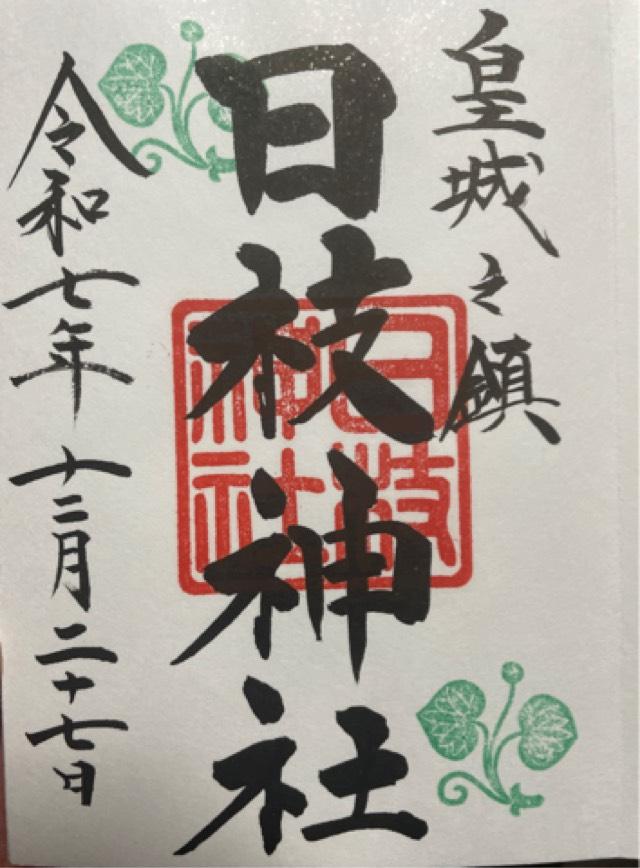 皇城之鎮
日枝神社
日枝
神社
令和七年十二月二十七日